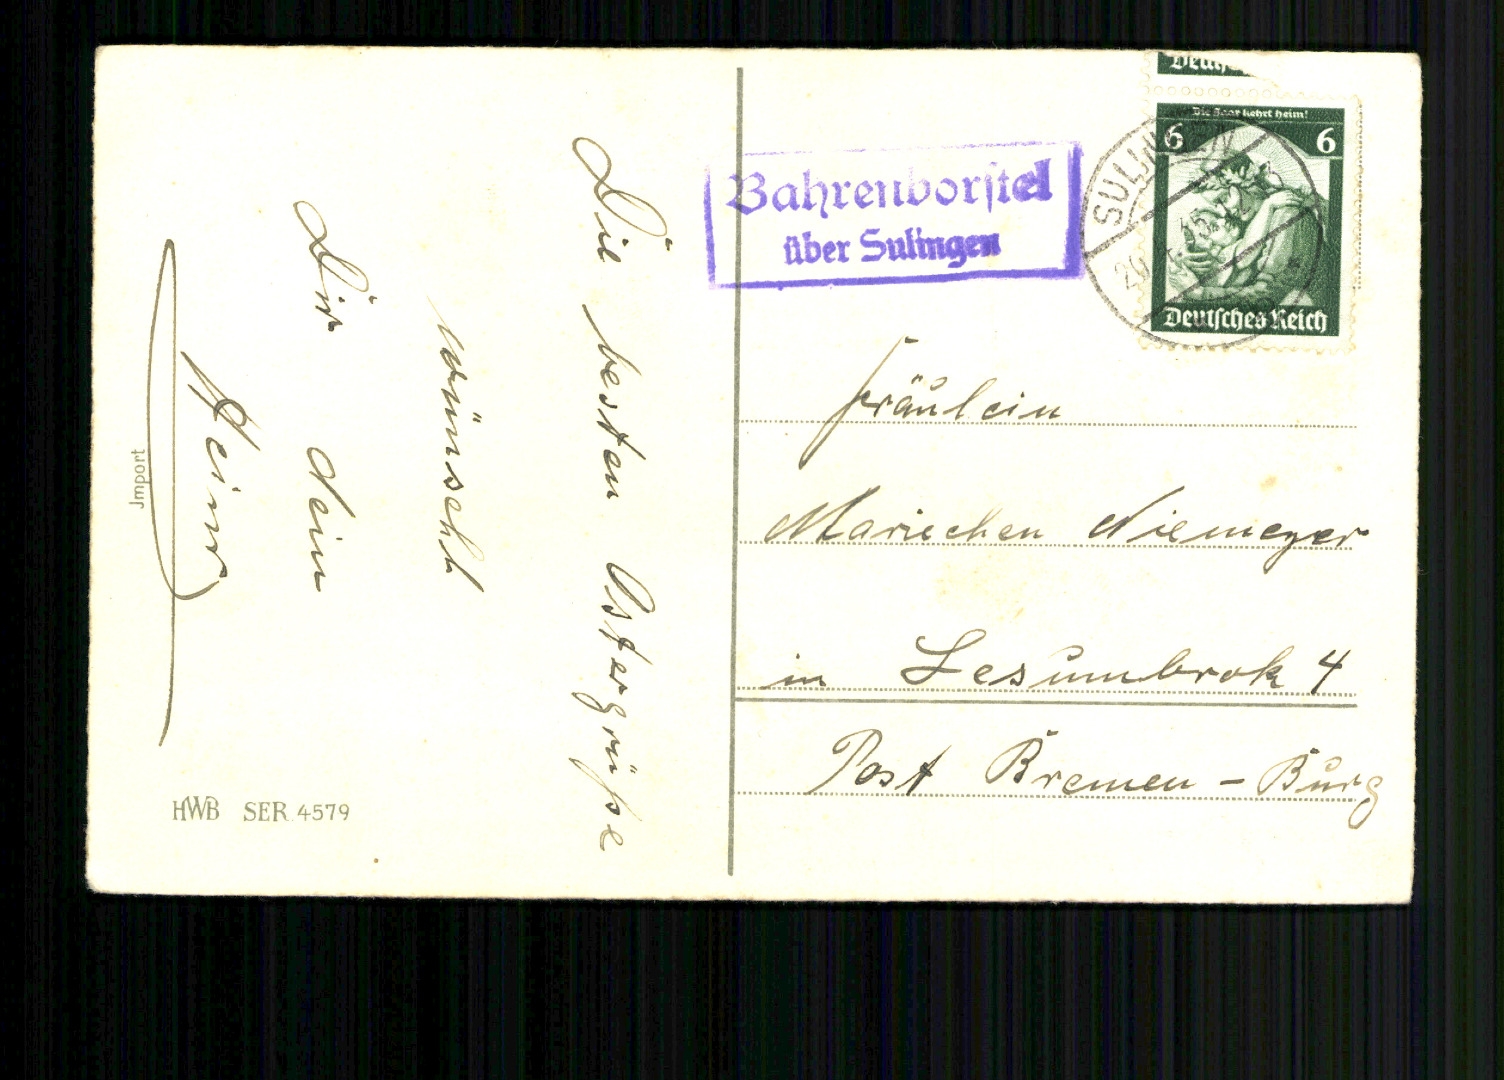 Die besten Ostergrüße
wünscht
Dir dein
Heini
Jmport
HWB SER. 4579
Bahrenborstel
über Sulingen
Deutsches
Die Saar kehrt heim!
6 6
Deutsches Reich
SULINGEN
35
Fräulein
Mariechen Niemeyer
in Lesumbrok 4
Post Bremen - Burg